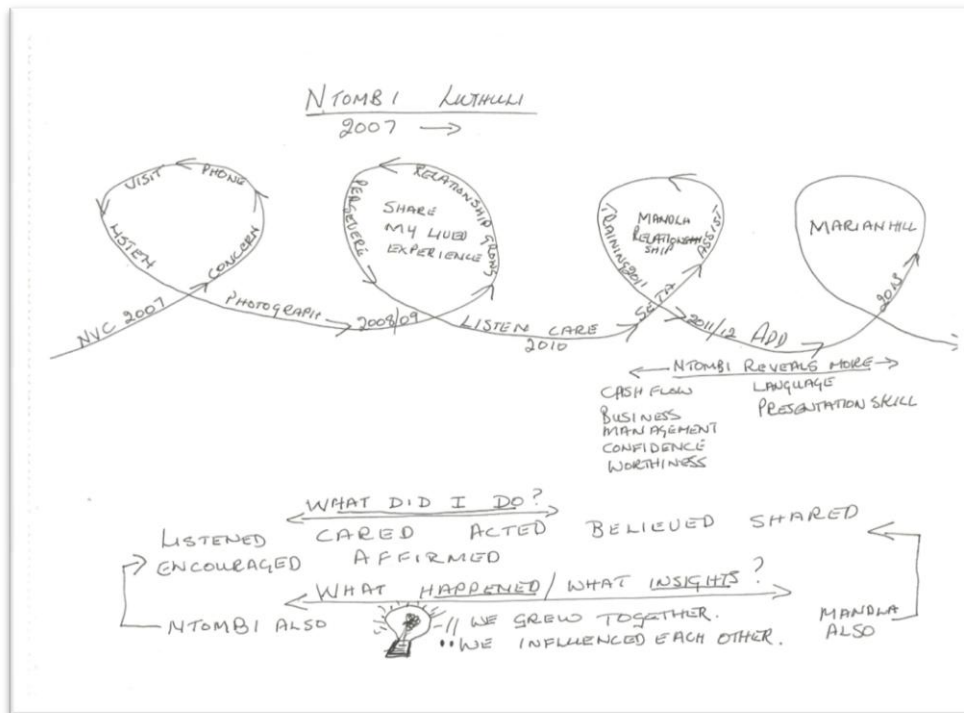 NTOMBI LUTHULI
2007 →
VISIT
PHONE
LISTEN
CONCERN
NVC 2007
PHOTOGRAPH
2008/09
PERSEVERE
RELATIONSHIP GROWS
SHARE
MY LIVED
EXPERIENCE
LISTEN CARE
2010
SETA
ASSIST
TRAINING 2011
MANDLA
RELATIONSHIP
SHIP
2011/12 ADD
MARIANHILL
2013
NTOMBI REVEALS MORE
CASH FLOW
BUSINESS
MANAGEMENT
CONFIDENCE
WORTHINESS
LANGUAGE
PRESENTATION SKILL
WHAT DID I DO?
LISTENED CARED ACTED BELIEVED SHARED
ENCOURAGED AFFIRMED
WHAT HAPPENED / WHAT INSIGHTS?
NTOMBI ALSO
WE GREW TOGETHER.
WE INFLUENCED EACH OTHER.
MANDLA
ALSO